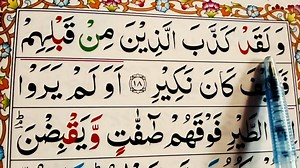 وَلَقَدْ كَذَّبَ الَّذِيْنَ مِنْ قَبْلِهِمْ
فَكَيْفَ كَانَ نَكِيْرِ ﴿۱۸﴾ اَوَلَمْ يَرَوْا
الطَّيْرِ فَوْقَهُمْ صٰٓفّٰتٍ وَّيَقْبِضْنَ